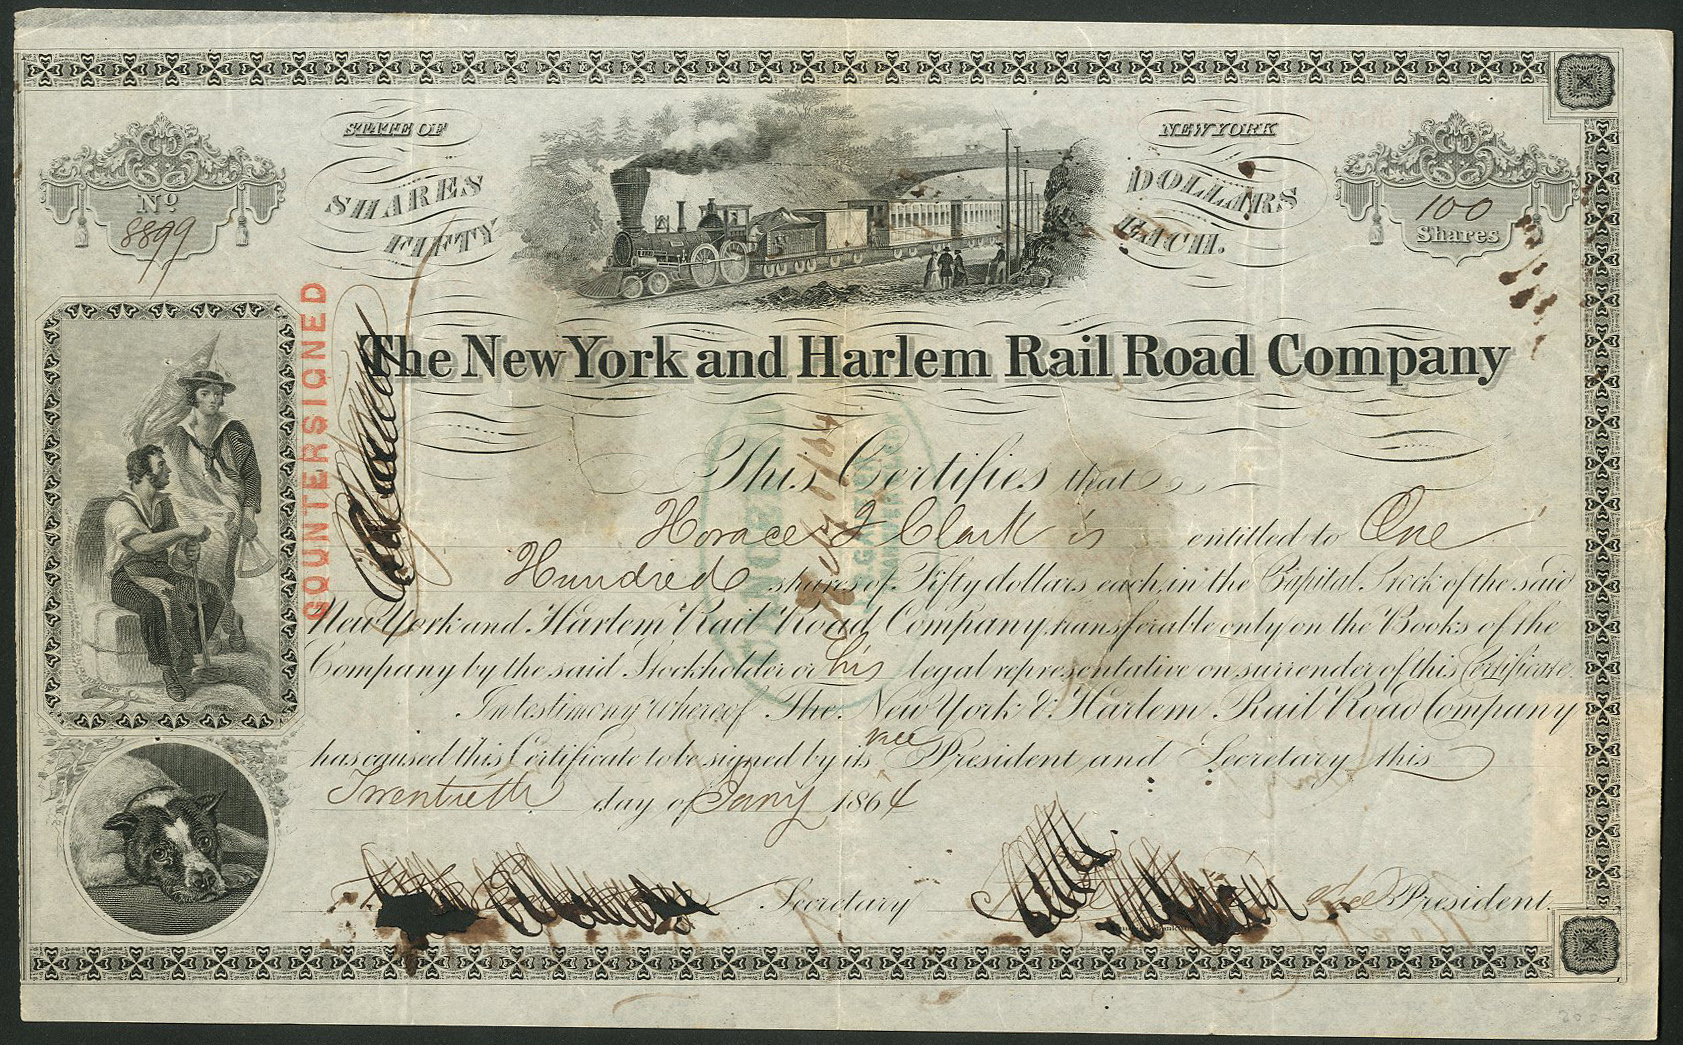 STATE OF NEW YORK
No 8899
SHARES FIFTY DOLLARS EACH.
100 Shares
COUNTERSIGNED
The New York and Harlem Rail Road Company
This Certifies that
Horace F Clark is entitled to One
Hundred shares of Fifty dollars each, in the Capital Stock of the said
New York and Harlem Rail Road Company, transferable only on the Books of the
Company by the said Stockholder or his legal representative on surrender of this Certificate.
In testimony whereof The New York & Harlem Rail Road Company
has caused this Certificate to be signed by its vice President and Secretary this
Twentieth day of Jany 1864
Secretary
vice President